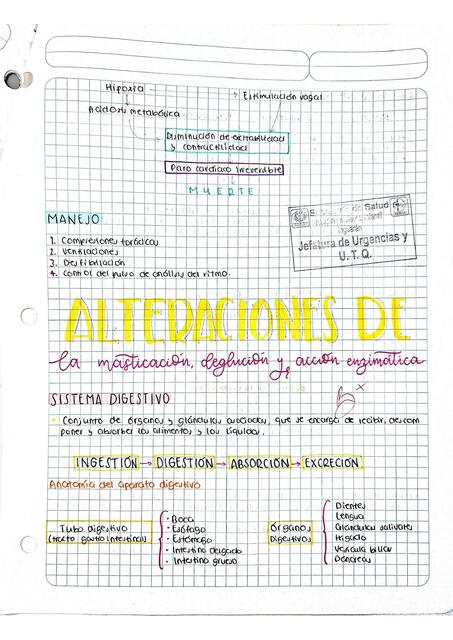 Hipoxia
Estimulación vagal
Acidosis metabólica
Disminución de excitabilidad
y contractilidad
Paro cardiaco irreversible
MUERTE
MANEJO
1. Compresiones torácicas
2. Ventilaciones
3. Desfibrilación
4. Control del pulso de análisis del ritmo.
de Salud
Jefatura de Urgencias y
U. T. Q.
ALTERACIONES DE
la masticación, deglución y acción enzimática
SISTEMA DIGESTIVO
Conjunto de órganos y glándulas asociadas, que se encarga de recibir, descom
poner y absorber los alimentos y los líquidos.
INGESTIÓN → DIGESTIÓN → ABSORCIÓN → EXCRECIÓN
Anatomía del aparato digestivo
Tubo digestivo
(tracto gastro intestinal)
• Boca
• Esófago
• Estómago
• Intestino delgado
• Intestino grueso
Órganos
Digestivos
Dientes
Lengua
Glándulas salivales
Hígado
Vesícula biliar
Páncreas